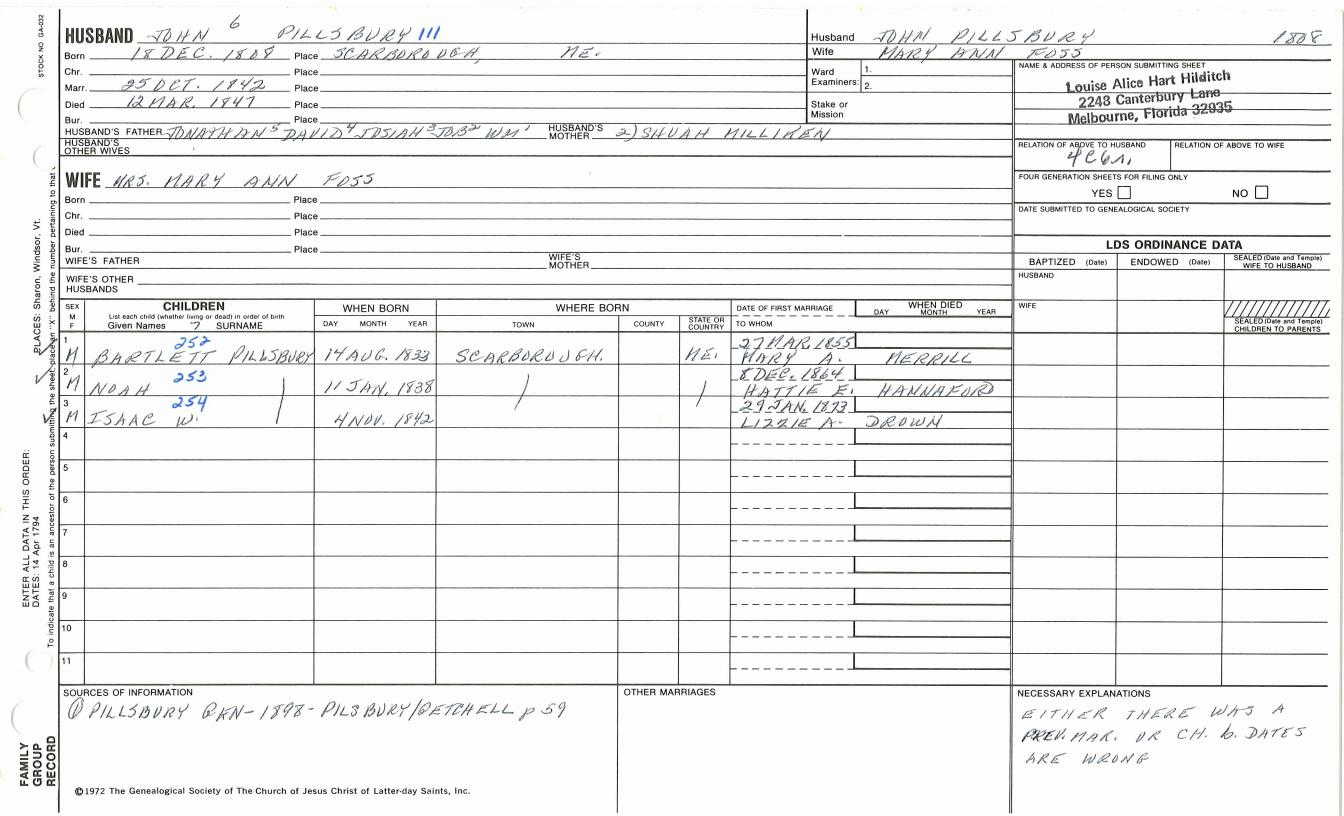 STOCK NO. GA-032
HUSBAND JOHN 6 PILLSBURY 111
Born 18 DEC. 1808 Place SCARBOROUGH, ME.
Chr. Place
Marr. 25 OCT. 1842 Place
Died 12 MAR. 1847 Place
Bur. Place
HUSBAND'S FATHER JONATHAN 5 DAVID 4 JOSIAH 3 JOB 2 WM 1 HUSBAND'S MOTHER 2) SHUAH MILLIKEN
HUSBAND'S OTHER WIVES
Husband JOHN PILLSBURY 1808
Wife MARY ANN FOSS
Ward Examiners: 1.
2.
Stake or Mission
NAME & ADDRESS OF PERSON SUBMITTING SHEET
Louise Alice Hart Hilditch
2243 Canterbury Lane
Melbourne, Florida 32935
RELATION OF ABOVE TO HUSBAND RELATION OF ABOVE TO WIFE
4C6r.
FOUR GENERATION SHEETS FOR FILING ONLY
YES NO
DATE SUBMITTED TO GENEALOGICAL SOCIETY
WIFE MRS. MARY ANN FOSS
Born Place
Chr. Place
Died Place
Bur. Place
WIFE'S FATHER WIFE'S MOTHER
WIFE'S OTHER HUSBANDS
LDS ORDINANCE DATA
BAPTIZED (Date) ENDOWED (Date) SEALED (Date and Temple) WIFE TO HUSBAND
HUSBAND
WIFE
SEALED (Date and Temple) CHILDREN TO PARENTS
SEX M F
CHILDREN
List each child (whether living or dead) in order of birth
Given Names 7 SURNAME
WHEN BORN
DAY MONTH YEAR
WHERE BORN
TOWN COUNTY STATE OR COUNTRY
DATE OF FIRST MARRIAGE
TO WHOM
WHEN DIED
DAY MONTH YEAR
1 252 27 MAR 1855
M BARTLETT PILLSBURY 14 AUG. 1833 SCARBOROUGH. ME. MARY A. MERRILL
2 253 8 DEC. 1864
M NOAH 11 JAN. 1838 HATTIE E. HANNAFORD
3 254 29 JAN. 1873
M ISAAC W. 4 NOV. 1842 LIZZIE A. DROWN
4
5
6
7
8
9
10
11
SOURCES OF INFORMATION
① PILLSBURY GEN-1898-PILSBURY/GETCHELL p 59
OTHER MARRIAGES
NECESSARY EXPLANATIONS
EITHER THERE WAS A
PREV. MAR. OR CH. b. DATES
ARE WRONG
©1972 The Genealogical Society of The Church of Jesus Christ of Latter-day Saints, Inc.
FAMILY GROUP RECORD
ENTER ALL DATA IN THIS ORDER:
DATES: 14 Apr 1794
PLACES: Sharon, Windsor, Vt.
To indicate that a child is an ancestor of the person submitting the sheet, place an "X" behind the number pertaining to that